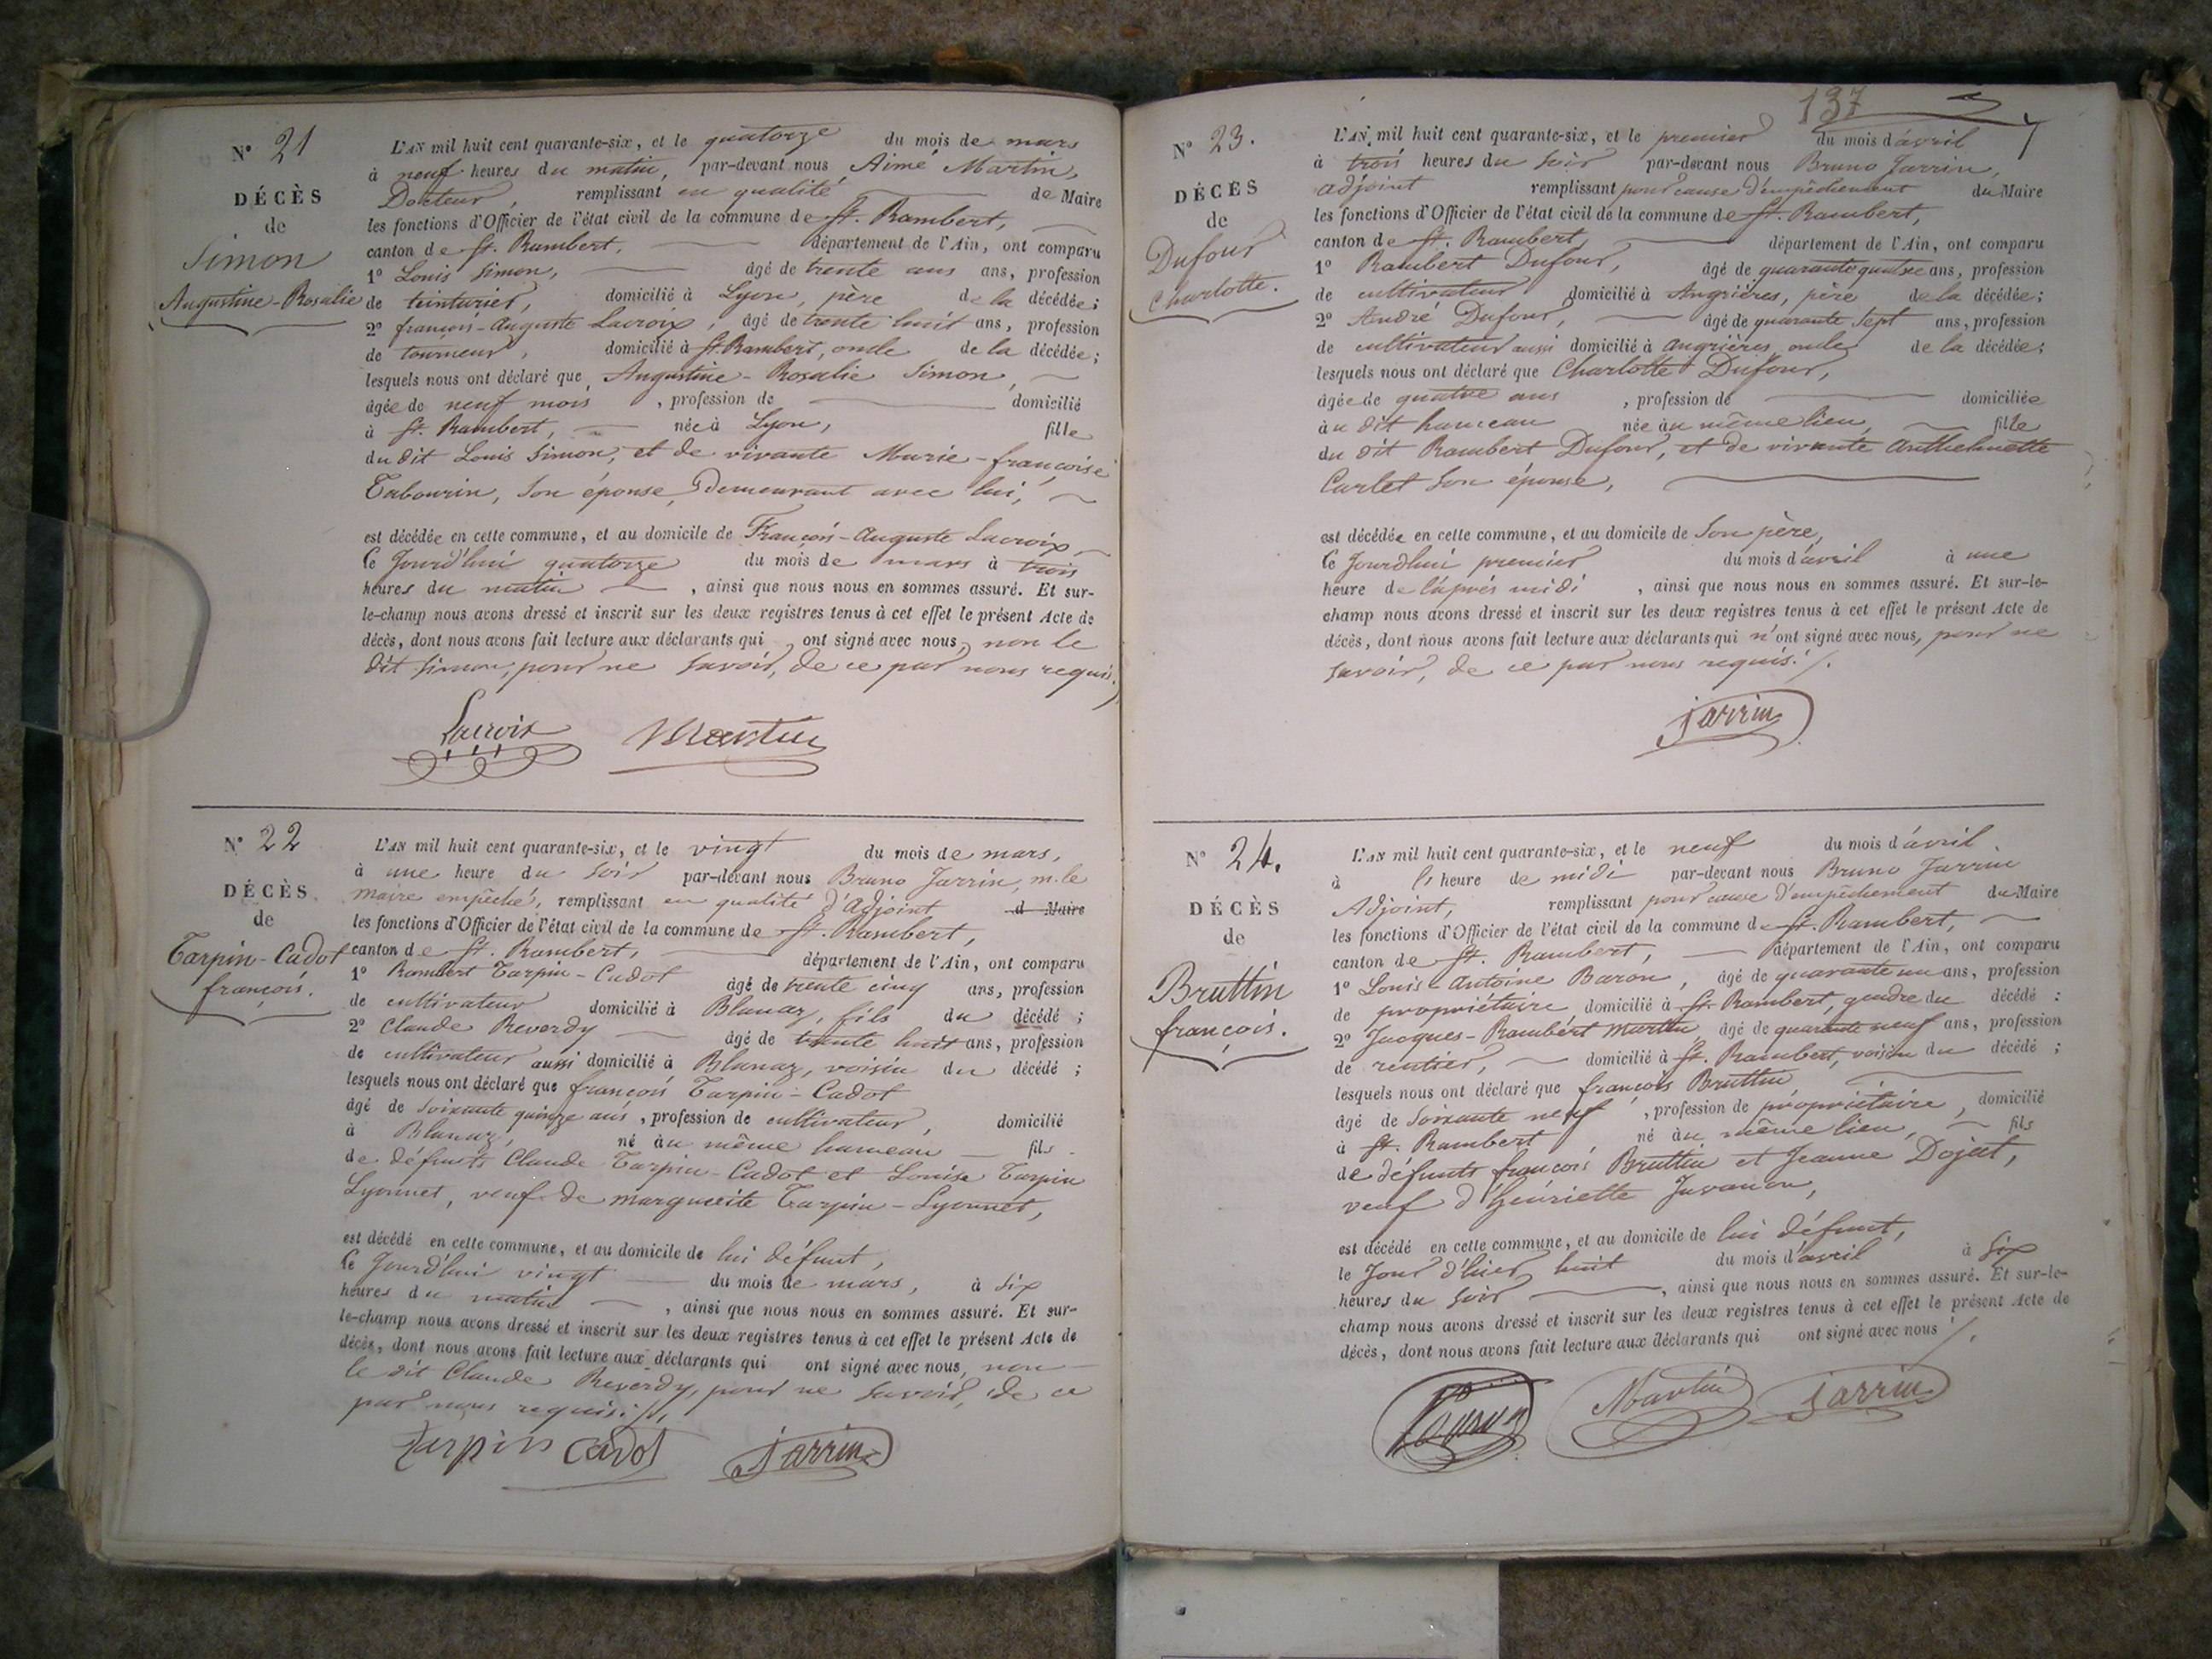 N° 21
DÉCÈS
de
Simon
Augustine-Rosalie
L'AN mil huit cent quarante-six, et le quatorze du mois de mars
à neuf heures du matin, par-devant nous Aimé Martin,
Docteur, remplissant en qualité de Maire
les fonctions d'Officier de l'état civil de la commune de St. Rambert,
canton de St. Rambert, département de l'Ain, ont comparu
1° Louis Simon, âgé de trente ans ans, profession
de teinturier, domicilié à Lyon, père de la décédée;
2° françois-Auguste Lacroix, âgé de trente huit ans, profession
de tourneur, domicilié à St. Rambert, oncle de la décédée;
lesquels nous ont déclaré que Augustine-Rosalie Simon,
âgée de neuf mois, profession de domicilié
à St. Rambert, née à Lyon, fille
du dit Louis Simon, et de vivante Marie-françoise
Tabourin, son épouse, demeurant avec lui,
est décédée en cette commune, et au domicile de François-Auguste Lacroix
Ce Jourd'hui quatorze du mois de mars à trois
heures du matin, ainsi que nous nous en sommes assuré. Et sur-
le-champ nous avons dressé et inscrit sur les deux registres tenus à cet effet le présent Acte de
décès, dont nous avons fait lecture aux déclarants qui ont signé avec nous, non le
dit Simon, pour ne savoir, de ce par nous requis.
Lacroix Martin
N° 22
DÉCÈS
de
Tarpin-Cadot
françois.
L'AN mil huit cent quarante-six, et le vingt du mois de mars,
à une heure du soir par-devant nous Bruno Jarrin, m. le
maire empêché, remplissant en qualité d'Adjoint d Maire
les fonctions d'Officier de l'état civil de la commune de St. Rambert,
canton de St. Rambert, département de l'Ain, ont comparu
1° Rambert Tarpin-Cadot âgé de trente cinq ans, profession
de cultivateur domicilié à Blanaz, fils du décédé;
2° Claude Reverdy âgé de trente huit ans, profession
de cultivateur aussi domicilié à Blanaz, voisin du décédé;
lesquels nous ont déclaré que françois Tarpin-Cadot
âgé de soixante quinze ans, profession de cultivateur, domicilié
à Blanaz, né au même hameau fils
de défunts Claude Tarpin-Cadot et Louise Tarpin
Lyonnet, veuf de marguerite Tarpin-Lyonnet,
est décédé en cette commune, et au domicile de lui défunt,
Ce Jourd'hui vingt du mois de mars, à six
heures du matin, ainsi que nous nous en sommes assuré. Et sur-
le-champ nous avons dressé et inscrit sur les deux registres tenus à cet effet le présent Acte de
décès, dont nous avons fait lecture aux déclarants qui ont signé avec nous, non
le dit Claude Reverdy, pour ne savoir, de ce
par nous requis.
Tarpin Cadot Jarrin
137
N° 23.
DÉCÈS
de
Dufour
Charlotte.
L'AN mil huit cent quarante-six, et le premier du mois d'avril
à trois heures du soir par-devant nous Bruno Jarrin,
adjoint remplissant pour cause d'empêchement du Maire
les fonctions d'Officier de l'état civil de la commune de St. Rambert,
canton de St. Rambert, département de l'Ain, ont comparu
1° Rambert Dufour, âgé de quarante quatre ans, profession
de cultivateur domicilié à Angrières, père de la décédée;
2° André Dufour, âgé de quarante sept ans, profession
de cultivateur aussi domicilié à angrières, oncle de la décédée;
lesquels nous ont déclaré que Charlotte Dufour,
âgée de quatre ans, profession de domiciliée
au dit hameau née au même lieu, fille
du dit Rambert Dufour, et de vivante anthelmette
Carlet son épouse,
est décédée en cette commune, et au domicile de son père,
Ce Jourdhui premier du mois d'avril à une
heure de l'après midi, ainsi que nous nous en sommes assuré. Et sur-le-
champ nous avons dressé et inscrit sur les deux registres tenus à cet effet le présent Acte de
décès, dont nous avons fait lecture aux déclarants qui n'ont signé avec nous, pour ne
savoir, de ce par nous requis.
Jarrin
N° 24.
DÉCÈS
de
Bruttin
françois.
L'AN mil huit cent quarante-six, et le neuf du mois d'avril
à l' heure de midi par-devant nous Bruno Jarrin
Adjoint, remplissant pour cause d'empêchement du Maire
les fonctions d'Officier de l'état civil de la commune de St. Rambert,
canton de St. Rambert, département de l'Ain, ont comparu
1° Louis-Antoine Baron, âgé de quarante un ans, profession
de propriétaire domicilié à St. Rambert, gendre du décédé:
2° Jacques-Rambert Martin âgé de quarante neuf ans, profession
de rentier, domicilié à St. Rambert, voisin du décédé;
lesquels nous ont déclaré que françois Bruttin,
âgé de soixante neuf, profession de propriétaire, domicilié
à St. Rambert né au même lieu, fils
de défunts françois Bruttin et Jeanne Dojat,
veuf d'henriette Juvanon,
est décédé en cette commune, et au domicile de lui défunt,
le Jour d'hier huit du mois d'avril à six
heures du soir, ainsi que nous nous en sommes assuré. Et sur-le-
champ nous avons dressé et inscrit sur les deux registres tenus à cet effet le présent Acte de
décès, dont nous avons fait lecture aux déclarants qui ont signé avec nous
Martin Jarrin